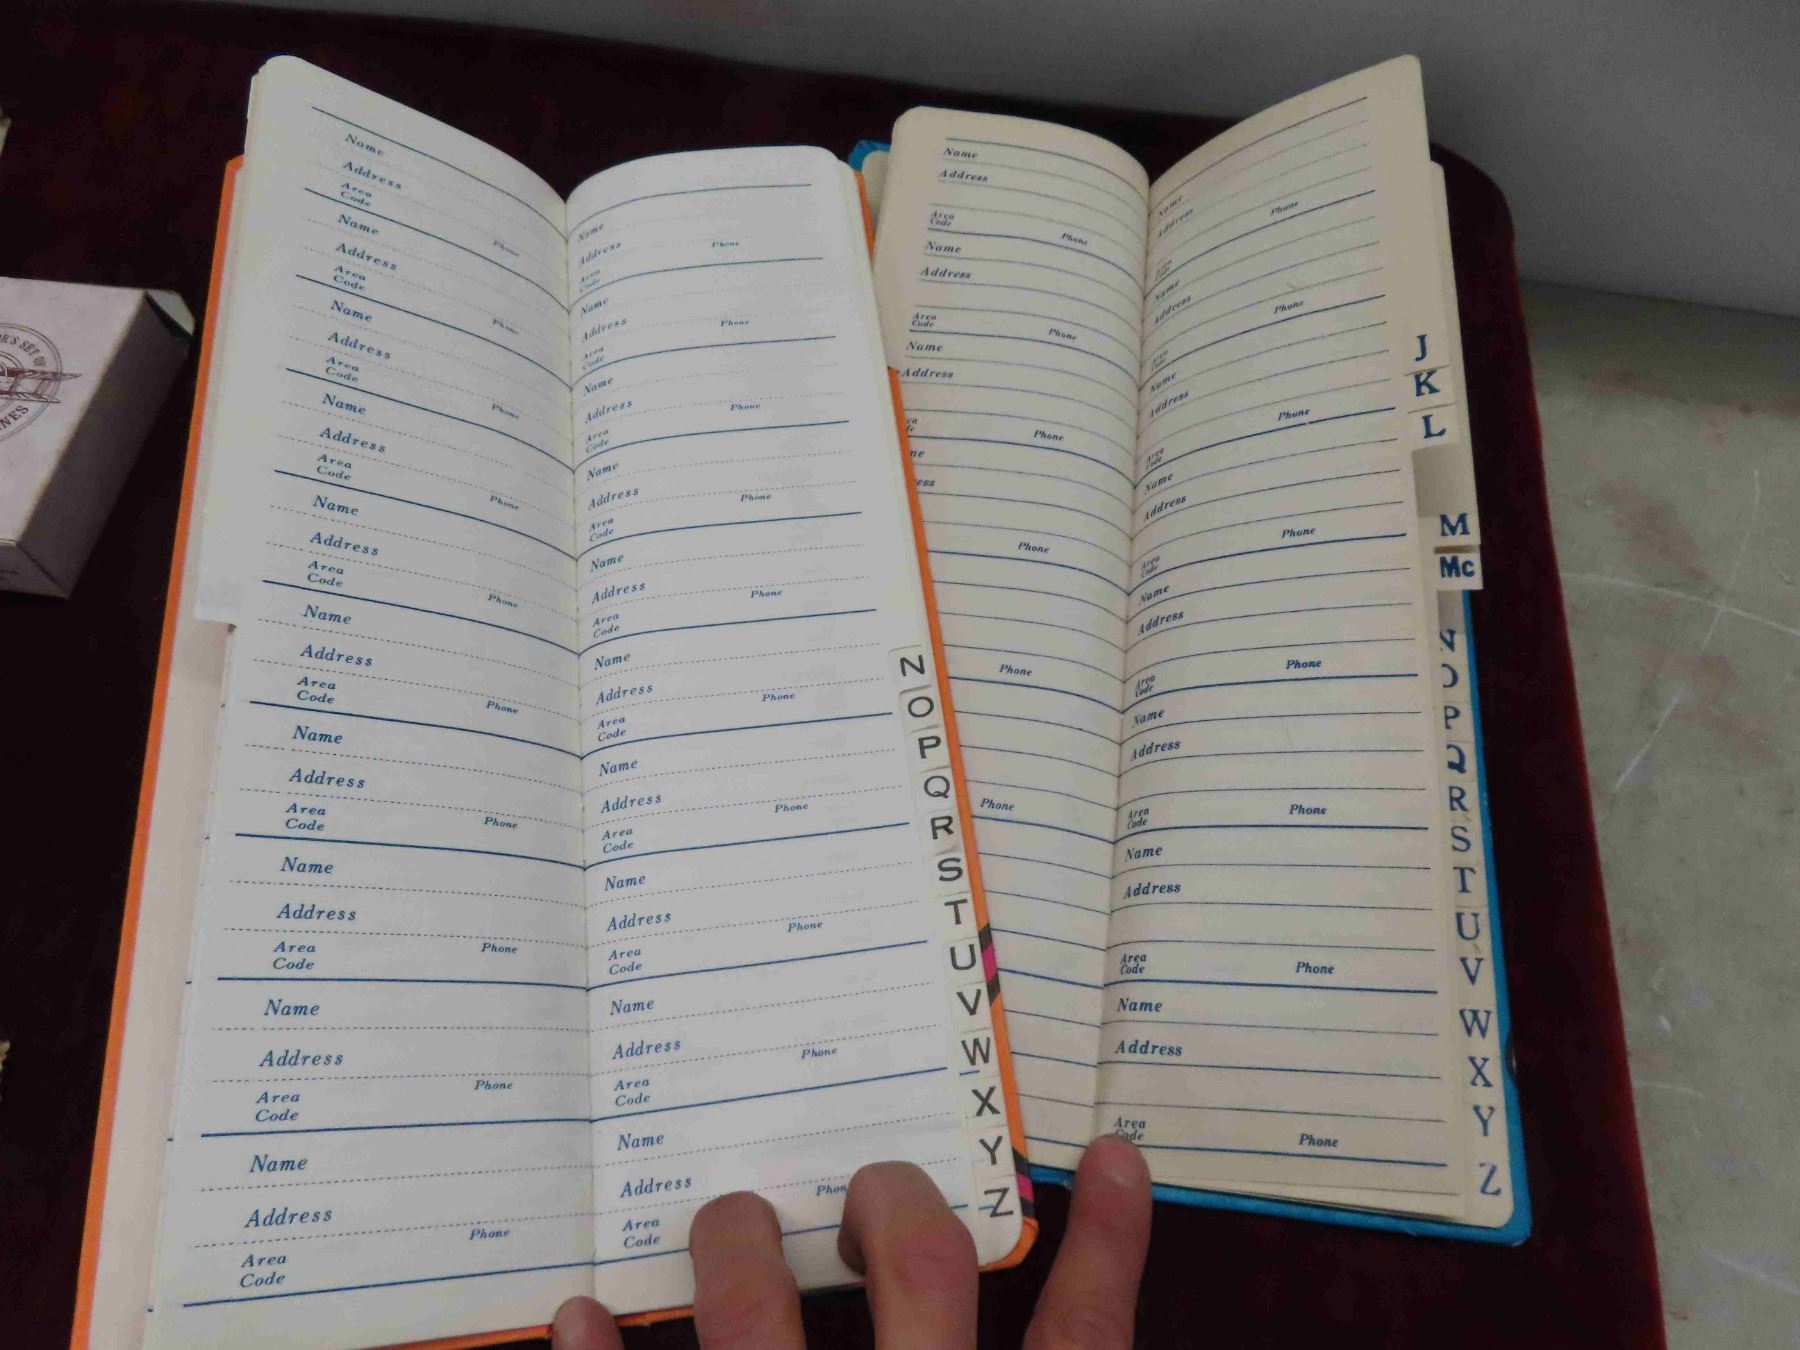 SET OF
Name
Address
Area
Code Phone
Name
Address
Area
Code Phone
Name
Address
Area
Code Phone
Name
Address
Area
Code Phone
Name
Address
Area
Code Phone
Name
Address
Area
Code Phone
Name
Address
Area
Code Phone
Name
Address
Area
Code Phone
Name
Address
Area
Code Phone
Name
Address
Area
Code Phone
Name
Address
Area
Code Phone
Name
Address
Area
Code Phone
Name
Address
Area
Code Phone
Name
Address
Area
Code Phone
Name
Address
Area
Code Phone
Name
Address
Area
Code Phone
Name
Address
Area
Code Phone
Name
Address
Area
Code Phone
Name
Address
Area
Code Phone
Name
Address
Area
Code Phone
N
O
P
Q
R
S
T
U
V
W
X
Y
Z
Name
Address
Area
Code Phone
Name
Address
Area
Code Phone
Name
Address
Phone
Phone
Phone
Phone
Name
Address
Area
Code Phone
Name
Address
Area
Code Phone
Name
Address
Area
Code Phone
Name
Address
Area
Code Phone
Name
Address
Area
Code Phone
Name
Address
Area
Code Phone
Name
Address
Area
Code Phone
Name
Address
Area
Code Phone
J
K
L
M
Mc
N
O
P
Q
R
S
T
U
V
W
X
Y
Z